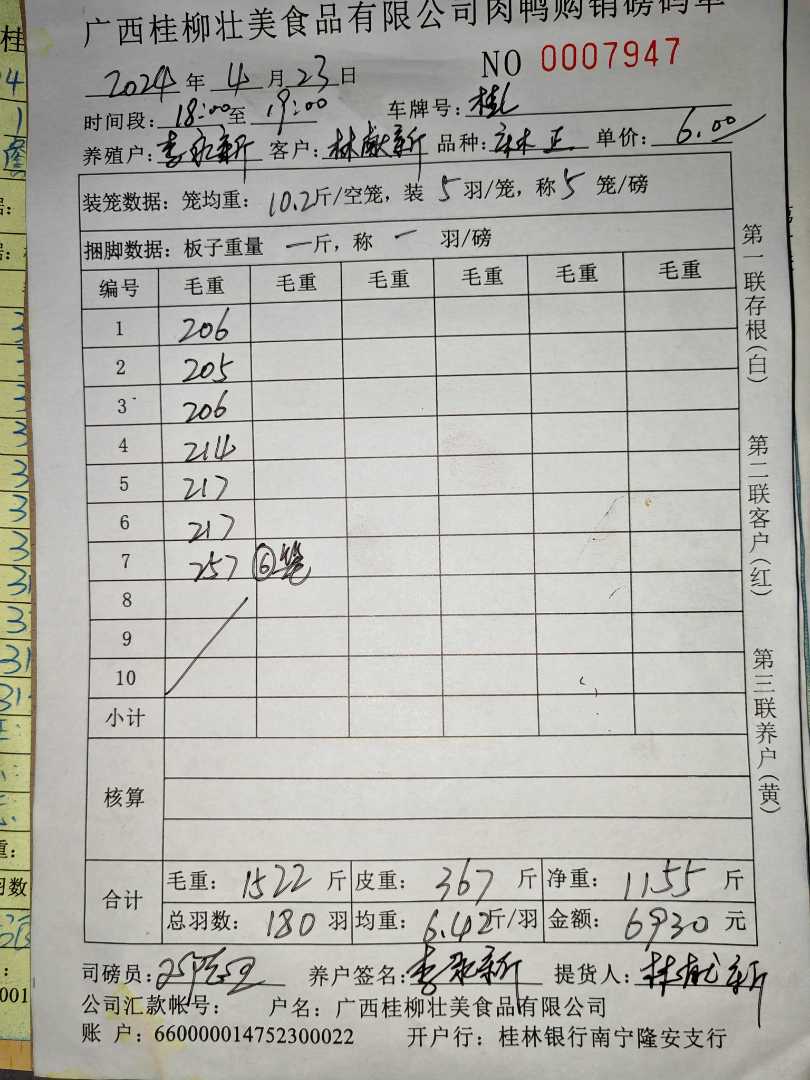 广西桂柳壮美食品有限公司肉鸭购销磅码单
NO 0007947
2024 年 4 月 23 日
时间段: 18:00 至 19:00 车牌号: 桂
养殖户: 李永新 客户: 林献新 品种: 单价: 6.00
装笼数据: 笼均重: 10.2斤/空笼, 装 5 羽/笼, 称 5 笼/磅
捆脚数据: 板子重量 一斤, 称 一 羽/磅
编号 毛重 毛重 毛重 毛重 毛重 毛重
1 206
2 205
3 206
4 214
5 217
6 217
7 257 ⑥笼
8
9
10
小计
核算
合计 毛重: 1522 斤 皮重: 367 斤 净重: 1155 斤
总羽数: 180 羽 均重: 6.42斤/羽 金额: 6930 元
司磅员: 养户签名: 李永新 提货人: 林献新
公司汇款帐号: 户名: 广西桂柳壮美食品有限公司
账 户: 660000014752300022 开户行: 桂林银行南宁隆安支行
第一联存根(白) 第二联客户(红) 第三联养户(黄)